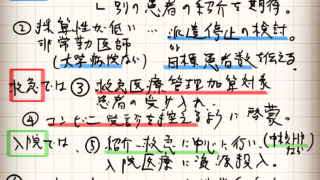 別の患者の紹介を期待。
② 採算性が低い… 派遣停止の検討。
非常勤医師 or
(大学病院など) 目標患者数を伝える
救急では ③ 救急医療管理加算対象
患者の受け入れ。
④ コンビニ受診を控えるように啓蒙。
入院では、⑤ 紹介・救急を中心に行い、
入院医療に資源投入。